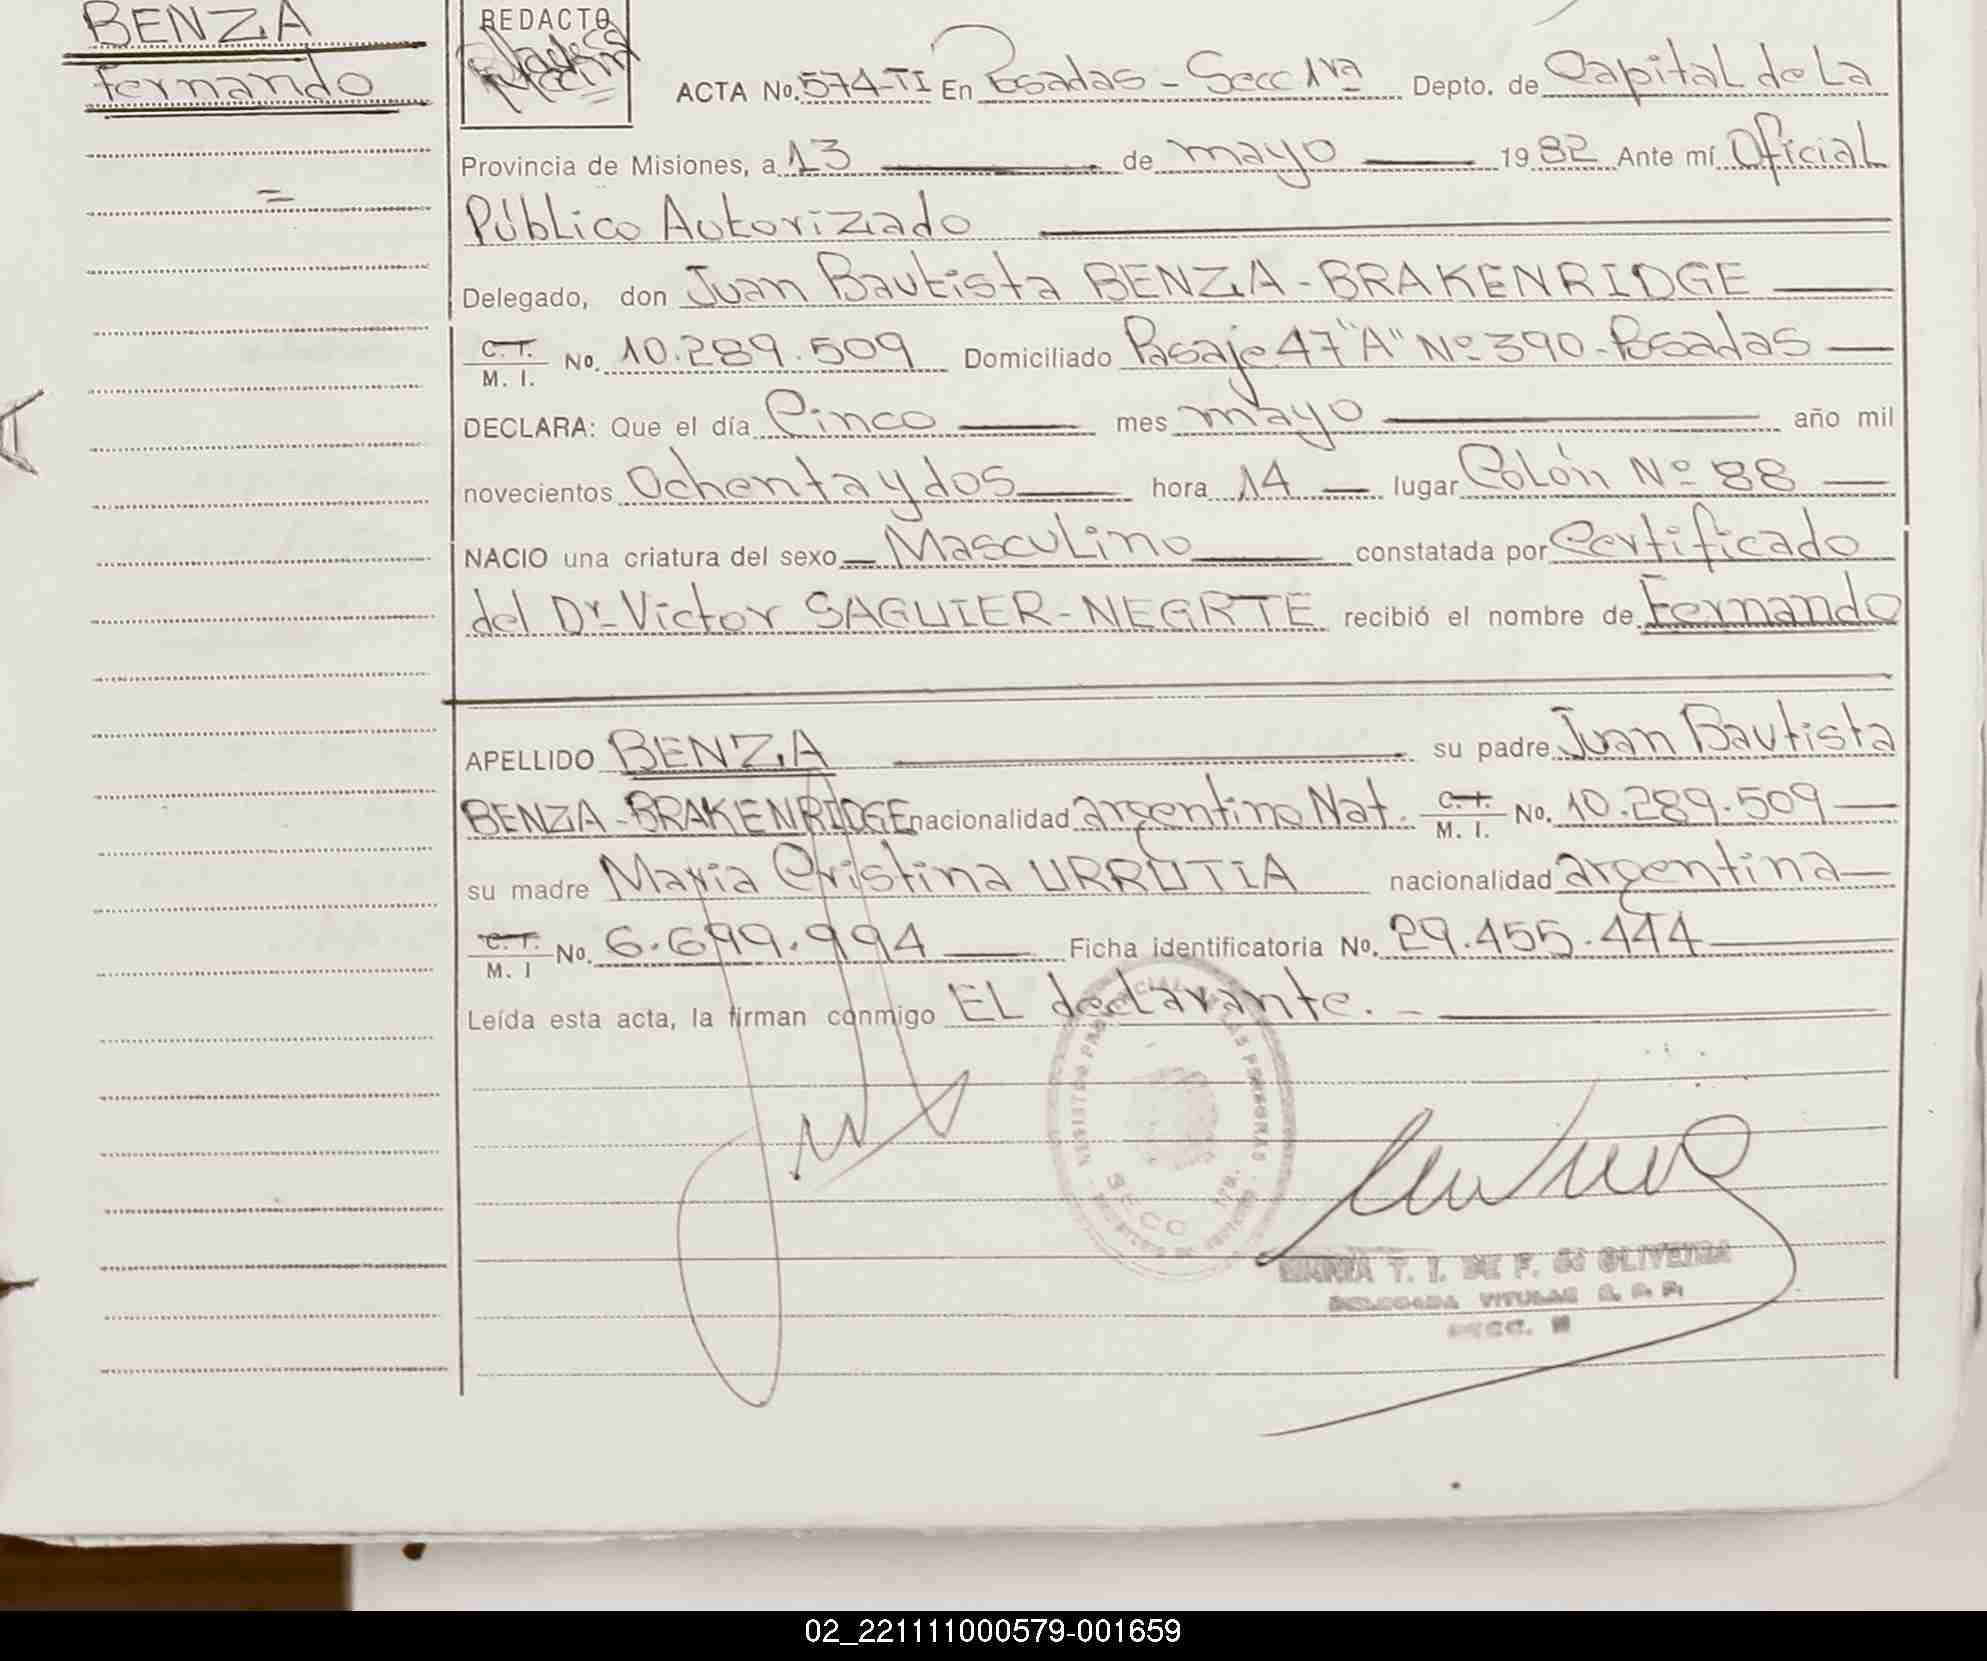 BENZA
Fernando
=
REDACTO
ACTA No. 574-TI En Posadas - Secc 1ra Depto. de Capital de La
Provincia de Misiones, a 13 de mayo 1982 Ante mí Oficial
Público Autorizado
Delegado, don Juan Bautista BENZA-BRAKENRIDGE
C.T. M. I. No. 10.289.509 Domiciliado Pasaje 47 "A" Nº 390-Posadas
DECLARA: Que el día Cinco mes mayo año mil
novecientos Ochenta y dos hora 14 lugar Colón Nº 88
NACIO una criatura del sexo Masculino constatada por Certificado
del Dr. Victor SAGUIER-NEGRTE recibió el nombre de Fernando
APELLIDO BENZA su padre Juan Bautista
BENZA-BRAKENRIDGE nacionalidad argentino Nat. C.T. M. I. No. 10.289.509
su madre Maria Cristina URRUTIA nacionalidad argentina
C.T. M. I No. 6.699.994 Ficha identificatoria No. 29.455.444
Leída esta acta, la firman conmigo EL declarante. -
REGISTRO PROVINCIAL DE LAS PERSONAS
SECC 1RA.
MARIA T. I. DE F. DI OLIVEIRA
DELEGADA TITULAR R. P. P.
SECC.
02_221111000579-001659